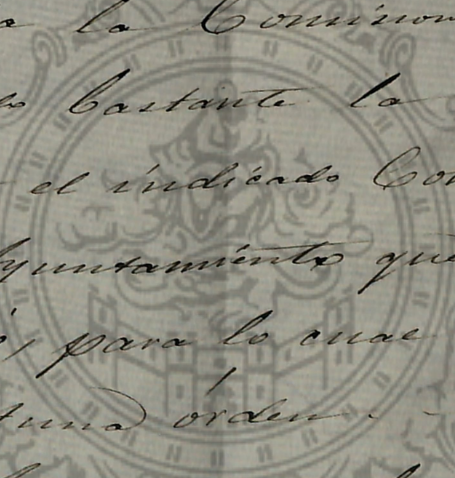 a la Comision
lo bastante la
el indicado Con
yuntamiento que
para lo cual
tuna órden . -